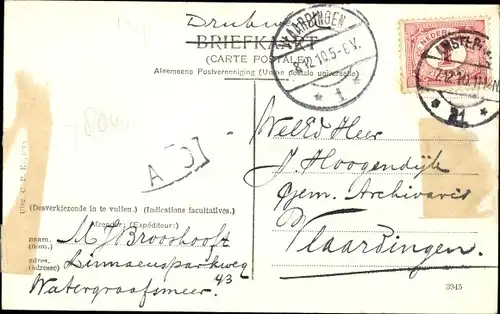 Drukw
BRIEFKAART
(CARTE POSTALE)
Algemeene Postvereeniging (Union postale universelle)
VLAARDINGEN
8.12.10.5-6.V.
1
NEDERLAND
AMSTERD
7.12.10.11-12N
21
8044
A
WelEd Heer
J. Hoogendijk
Gem. Archivaris
Vlaardingen.
(Desverkiezende in te vullen.) (Indications facultatives.)
Afzender: (Expéditeur:)
naam. (nom)
M J Brooshooft
adres. (adresse)
Linnaeusparkweg
43
Watergraafsmeer.
3945